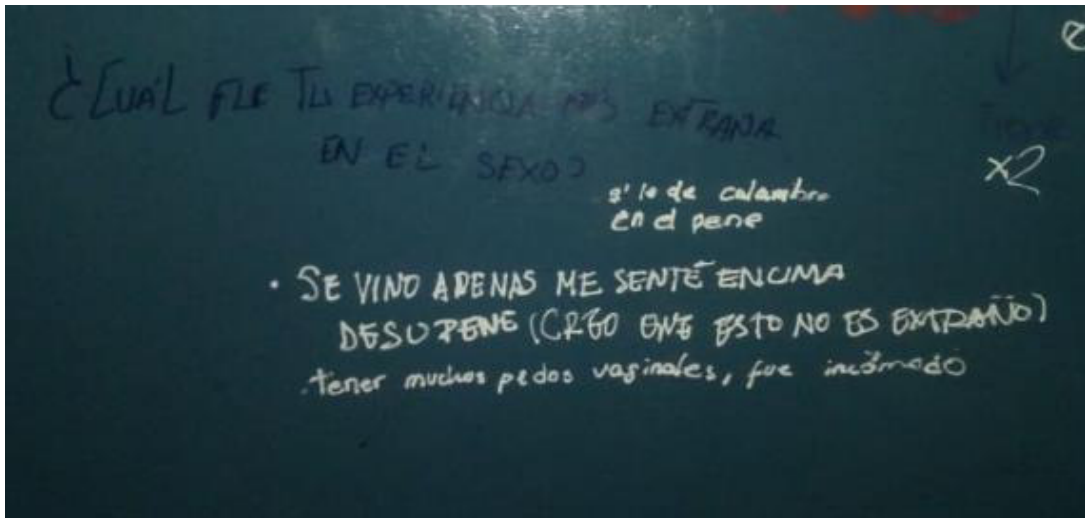 ¿CUÁL FUE TU EXPERIENCIA MÁS EXTRAÑA
EN EL SEXO?
x2
en el pene
• SE VINO APENAS ME SENTÉ ENCIMA
DE SU PENE (CREO QUE ESTO NO ES EXTRAÑO)
. tener muchos pedos vaginales, fue incómodo